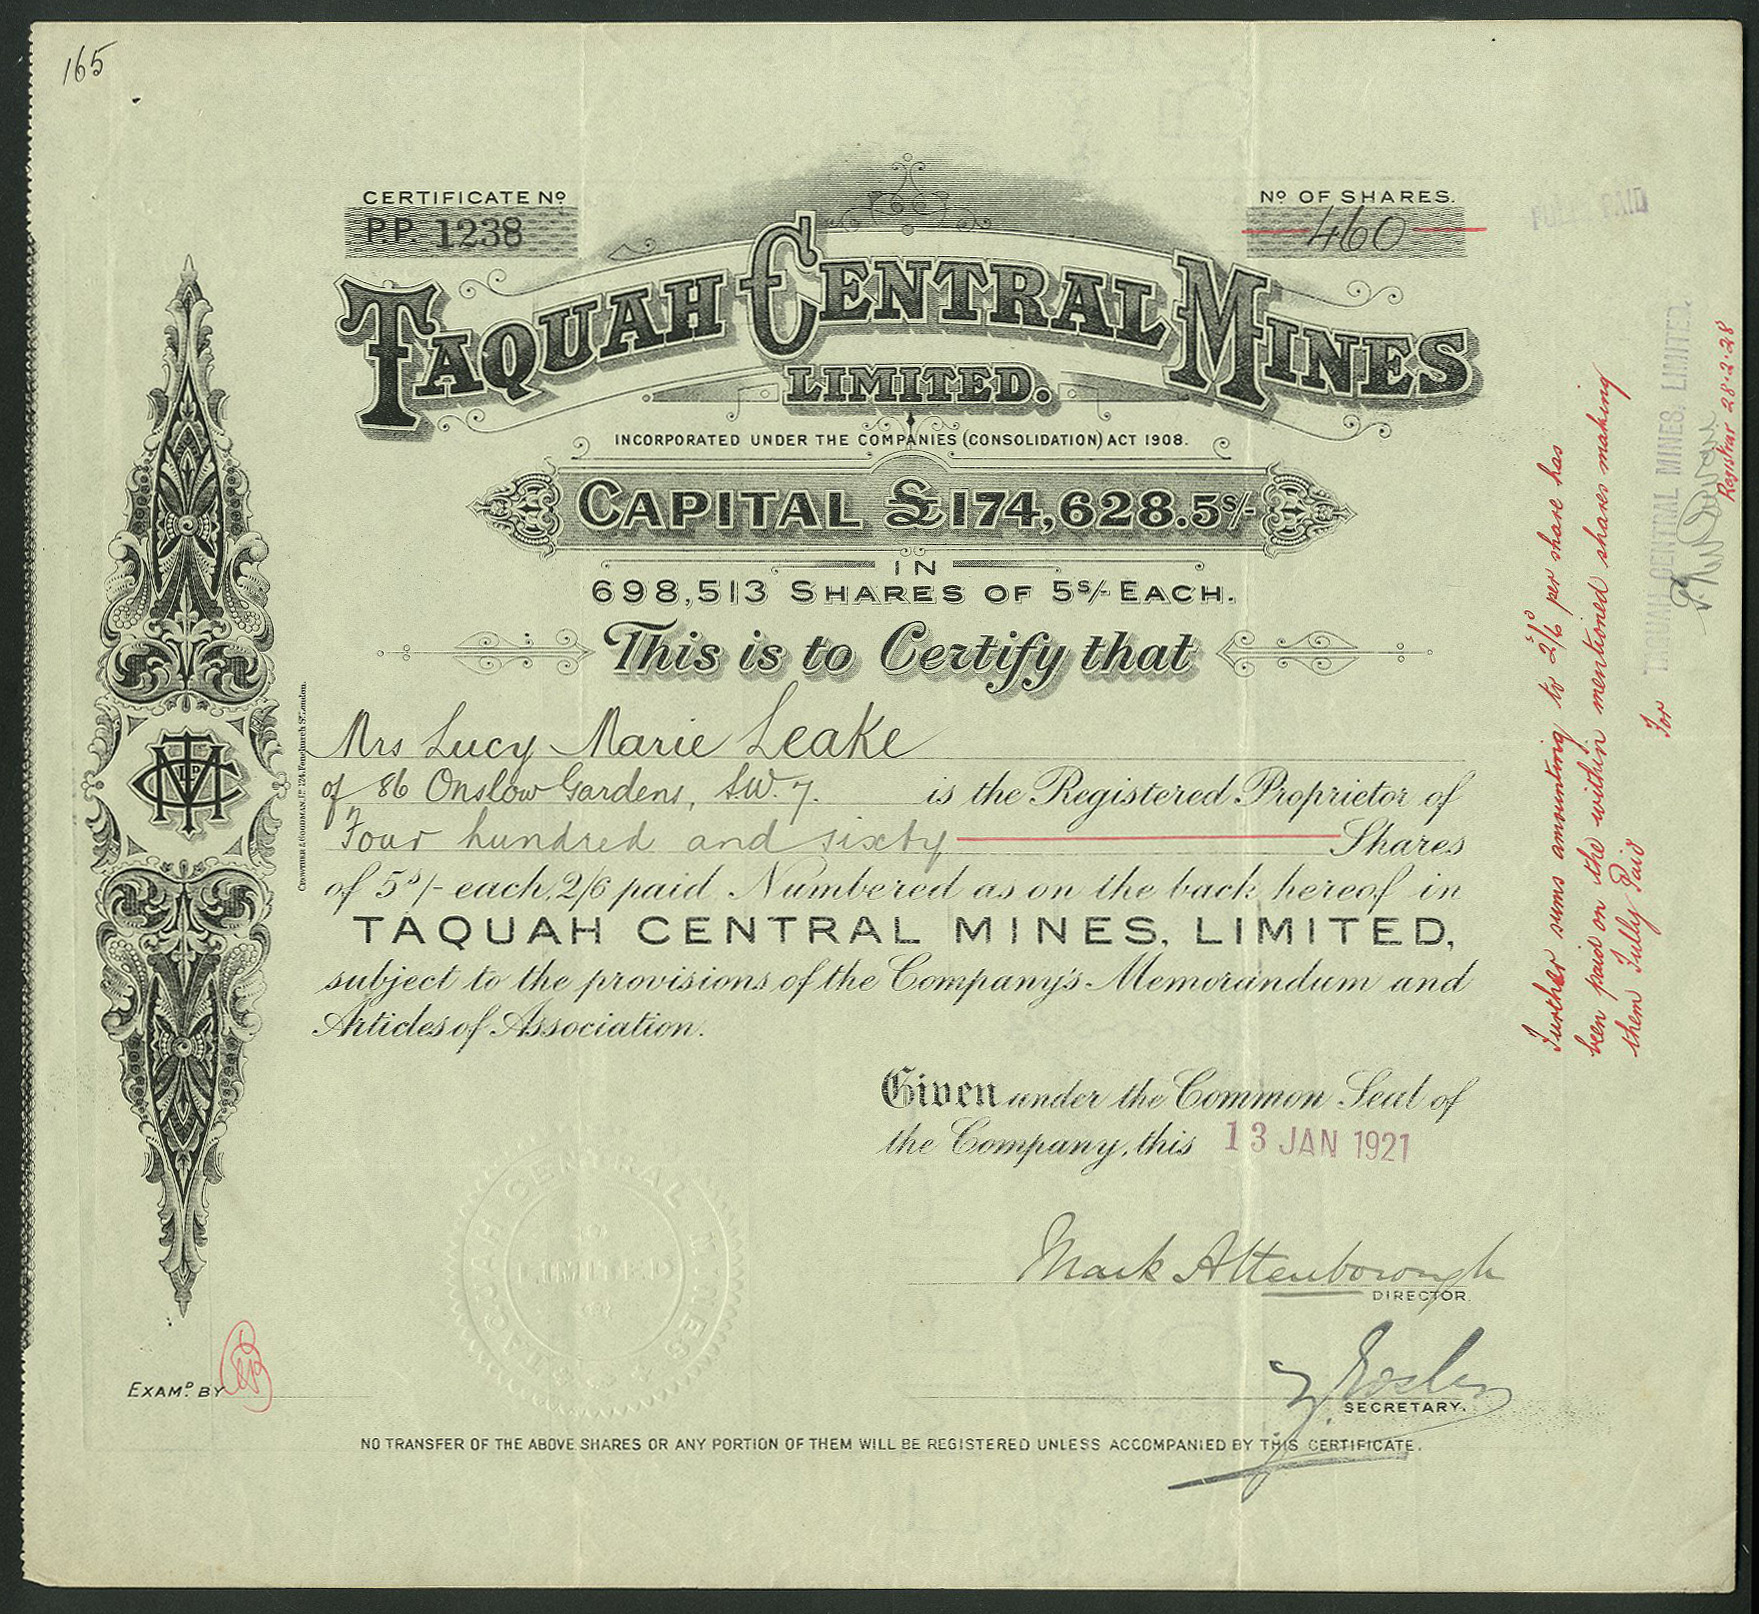 165
CERTIFICATE Nº
P.P. 1238
Nº OF SHARES.
460
FULLY PAID
TAQUAH CENTRAL MINES
LIMITED.
INCORPORATED UNDER THE COMPANIES (CONSOLIDATION) ACT 1908.
CAPITAL £174,628.5s/-
IN
698,513 SHARES OF 5s/- EACH.
This is to Certify that
Mrs Lucy Marie Leake
of 86 Onslow Gardens, S.W. 7. is the Registered Proprietor of
Four hundred and sixty Shares
of 5s/- each, 2/6 paid Numbered as on the back hereof in
TAQUAH CENTRAL MINES, LIMITED,
subject to the provisions of the Company's Memorandum and
Articles of Association.
Given under the Common Seal of
the Company, this 13 JAN 1921
Mark Attenborough
DIRECTOR.
SECRETARY.
EXAMD. BY
NO TRANSFER OF THE ABOVE SHARES OR ANY PORTION OF THEM WILL BE REGISTERED UNLESS ACCOMPANIED BY THIS CERTIFICATE.
TAQUAH CENTRAL MINES
LIMITED
TCM LD
CROWTHER & GOODMAN, LD. 124, Fenchurch St. London.
Further sums amounting to 2s/6d per share has
been paid on the within mentioned shares making
them Fully Paid
For TAQUAH CENTRAL MINES, LIMITED.
Registrar 28.2.28